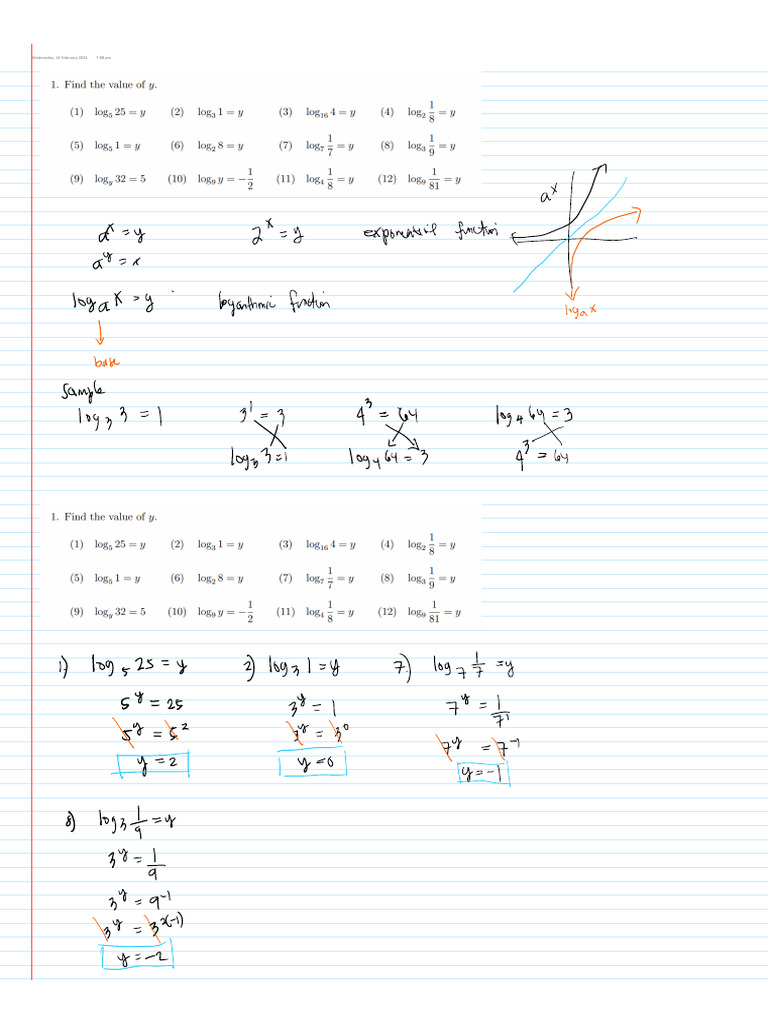 Wednesday, 14 February 2024 7:38 pm
1. Find the value of y.
(1) log₅ 25 = y (2) log₃ 1 = y (3) log₁₆ 4 = y (4) log₂ 1/8 = y
(5) log₅ 1 = y (6) log₂ 8 = y (7) log₇ 1/7 = y (8) log₃ 1/9 = y
(9) log_y 32 = 5 (10) log₉ y = −1/2 (11) log₄ 1/8 = y (12) log₉ 1/81 = y
aˣ
aˣ = y 2ˣ = y exponential function
a^y = x
logₐ x = y logarithmic function
logₐ x
base
Sample
log₃ 3 = 1 3¹ = 3 4³ = 64 log₄ 64 = 3
log₃ 3 = 1 log₄ 64 = 3 4³ = 64
1. Find the value of y.
(1) log₅ 25 = y (2) log₃ 1 = y (3) log₁₆ 4 = y (4) log₂ 1/8 = y
(5) log₅ 1 = y (6) log₂ 8 = y (7) log₇ 1/7 = y (8) log₃ 1/9 = y
(9) log_y 32 = 5 (10) log₉ y = −1/2 (11) log₄ 1/8 = y (12) log₉ 1/81 = y
1) log₅ 25 = y 2) log₃ 1 = y 7.) log₇ 1/7 = y
5^y = 25 3^y = 1 7^y = 1/7¹
5^y = 5² 3^y = 3⁰ 7^y = 7⁻¹
y = 2 y = 0 y = -1
8) log₃ 1/9 = y
3^y = 1/9
3^y = 9⁻¹
3^y = 3^2(-1)
y = -2